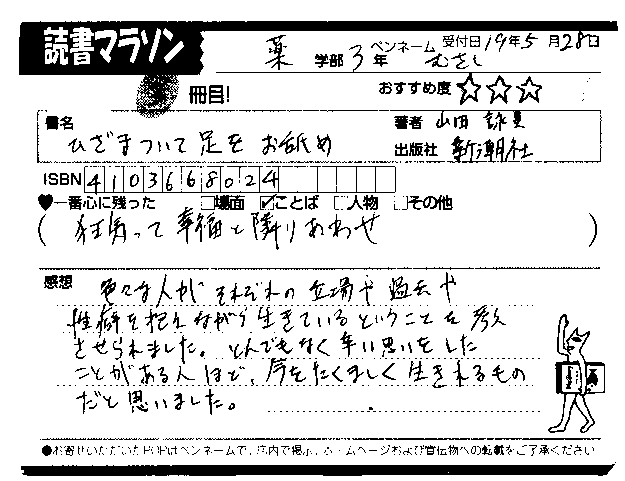 読書マラソン
薬 学部 3年 ペンネーム むさし 受付日 19年5月28日
冊目!
おすすめ度 ☆☆☆
書名 ひざまついて足をお舐め
著者 山田 詠美
出版社 新潮社
ISBN 4103668024
♥一番心に残った □場面 ☑ことば □人物 □その他
(狂気って幸福と隣りあわせ)
感想 色々な人がそれぞれの立場や過去や
性癖を抱えながら生きているということを考え
させられました。とんでもなく辛い思いをした
ことがある人ほど、今をたくましく生きれるもの
だと思いました。
●お寄せいただいたPOPはペンネームで、店内で掲示、ホームページおよび宣伝物への転載をご了承ください